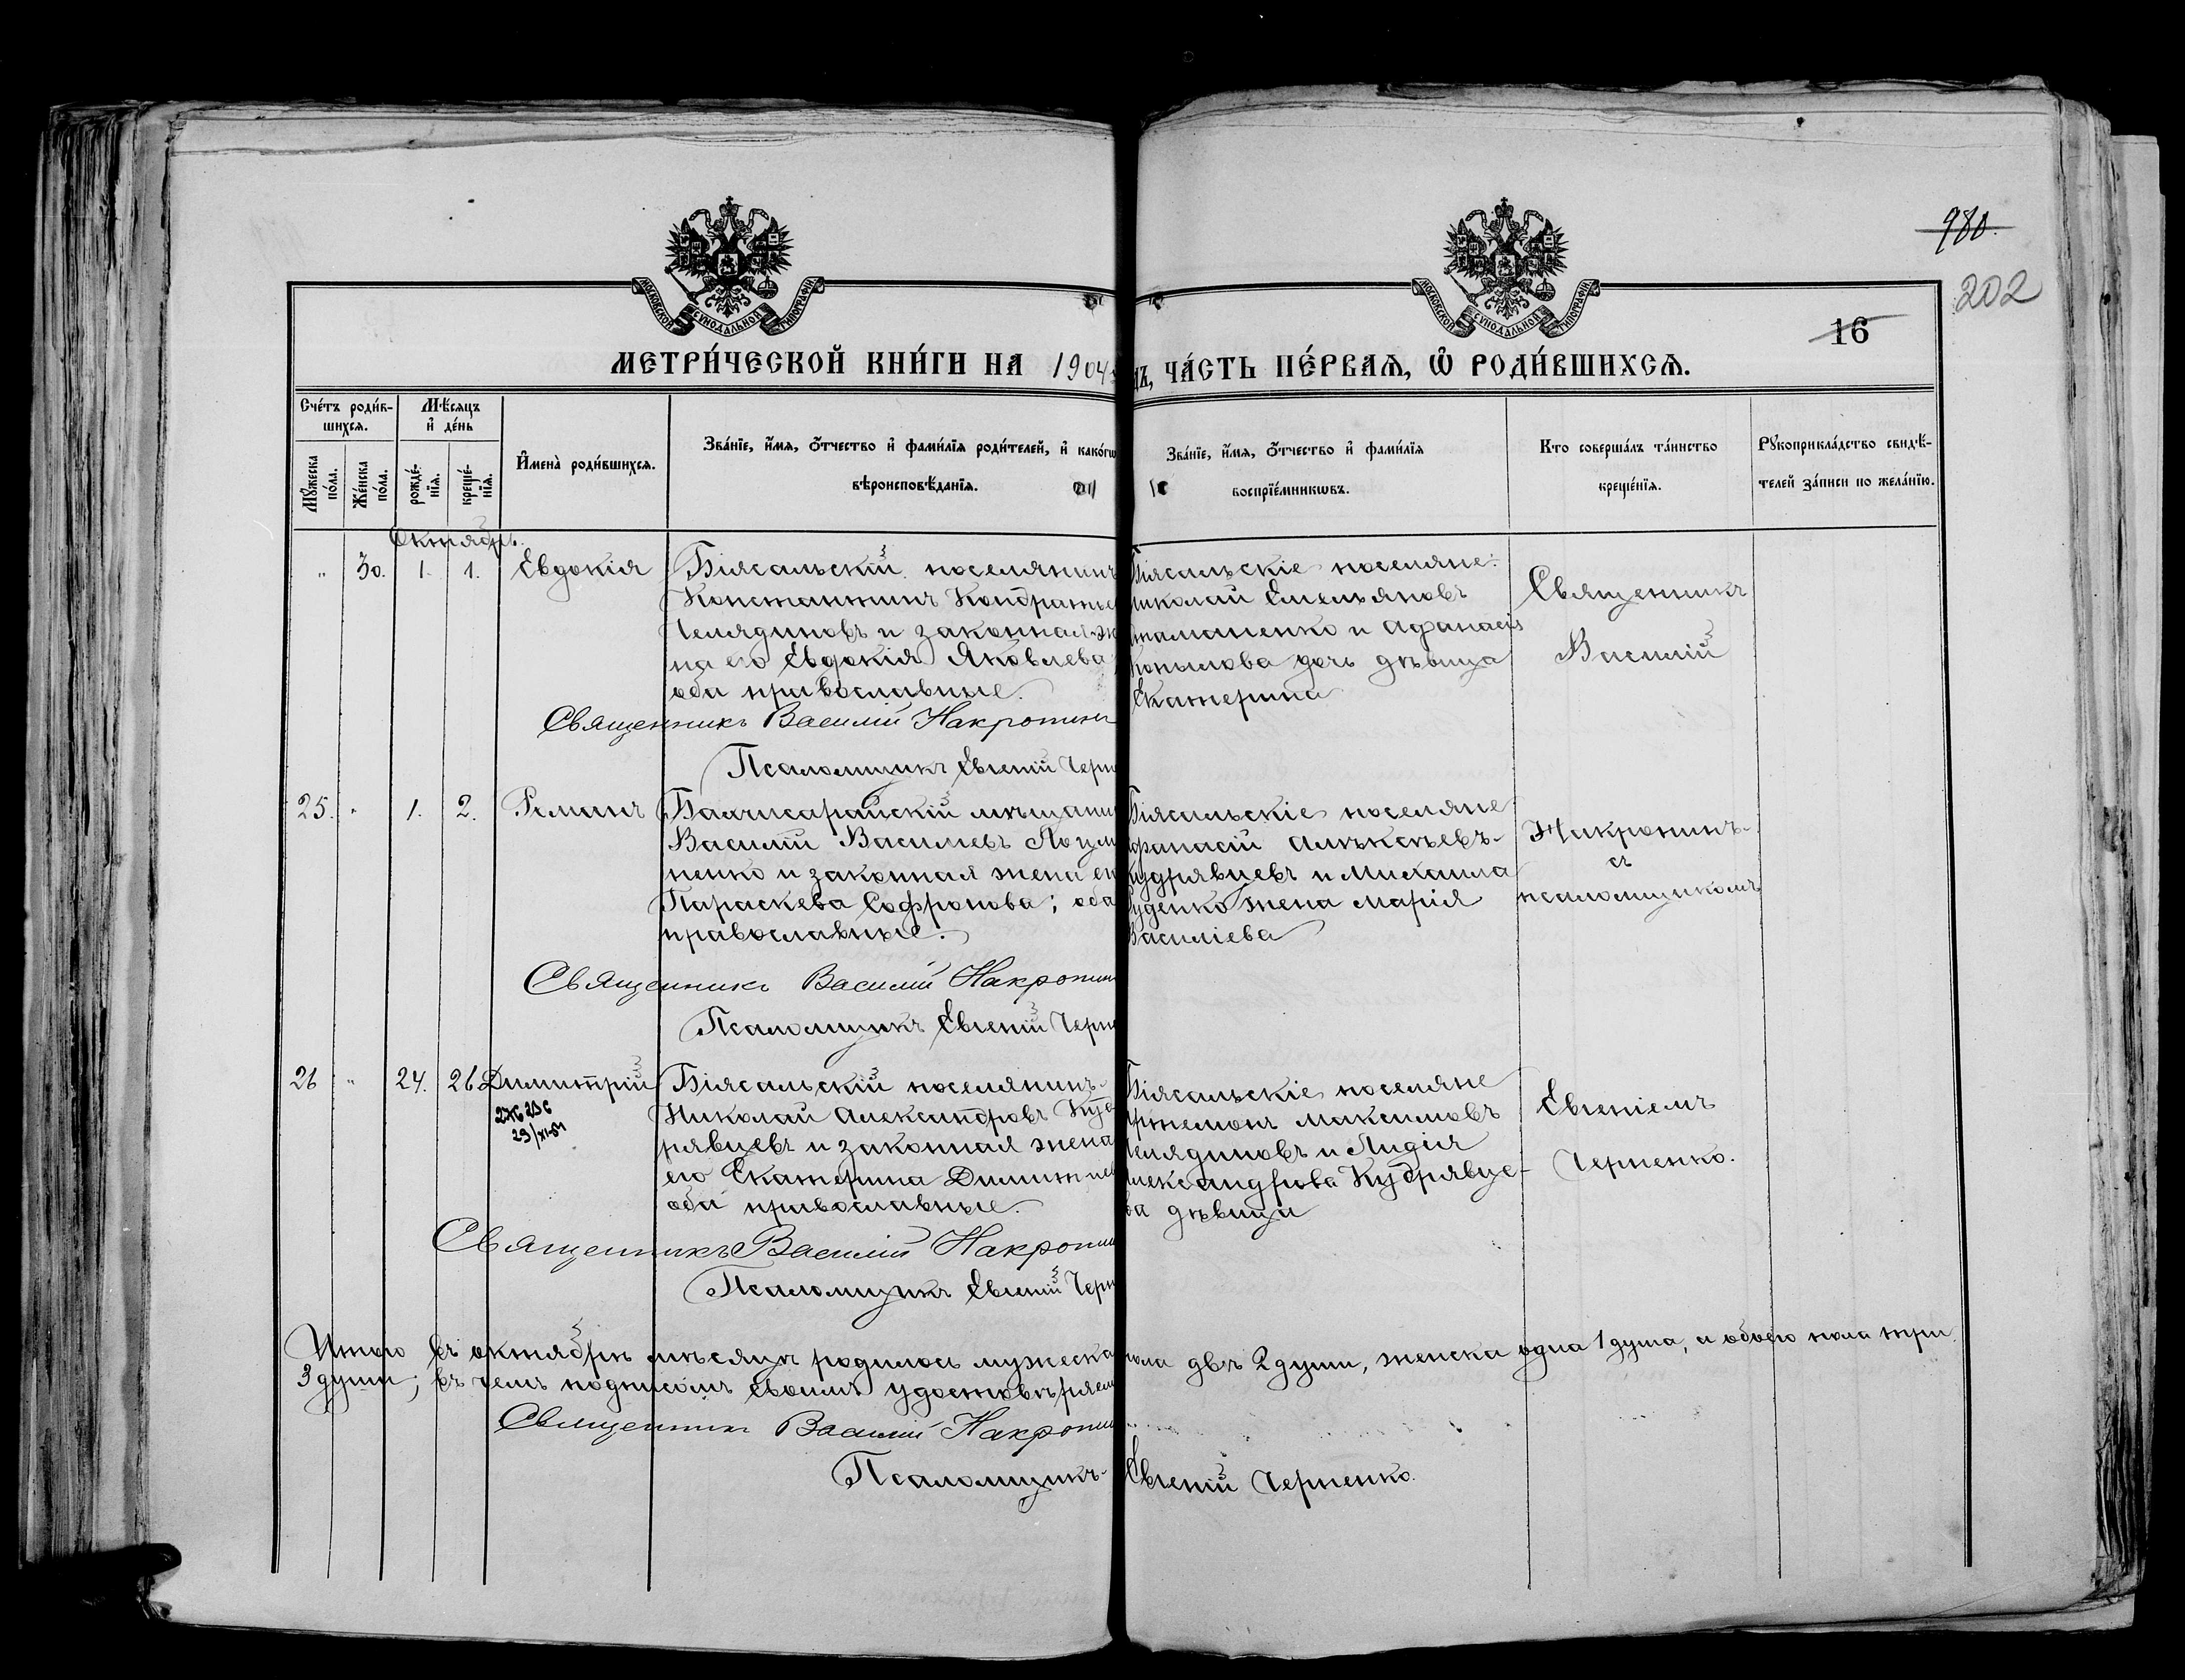 980.
202
16
МОСКОВСКОЙ СѴНОДАЛЬНОЙ ТИПОГРАФІИ
МОСКОВСКОЙ СѴНОДАЛЬНОЙ ТИПОГРАФІИ
МЕТРИ́ЧЕСКОЙ КНИ́ГИ НА 1904
ЧА́СТЬ ПЕ́РВАѦ, Ѽ РОДИ́ВШИХСѦ.
Сче́тъ роди́в-
шихся.
Му́жеска по́ла.
Же́нска по́ла.
Мѣ́сяцъ и де́нь
рожде́-нїя.
креще́-нїя.
Имена̀ роди́вшихся.
Зва́нїе, и́мя, о́тчество и фами́лїя роди́телей, и како́гѡ
вѣроисповѣ́данїя.
Зва́нїе, и́мя, о́тчество и фами́лїя
воспрїе́мникωвъ.
Кто соверша́лъ та́инство
креще́нїя.
Рꙋкоприкла́дство свидѣ́-
телей за́писи по жела́нїю.
Октябрь.
" 30. 1. 1. Евдокія
Біясальскій поселянинъ
Константинъ Кондратье
Челядиновъ и законная же
на его Евдокія Яковлева
оба православные.
Священникъ Василій Накропинъ
Псаломщикъ Евгеній Черн
Біясальскіе поселяне:
Николай Емельяновъ
Атаманенко и Афанасія
Копылова дочь дѣвица
Екатерина
Священникъ
Василій
25. " 1. 2. Романъ
Бахчисарайскій мѣщани
Василій Васильевъ
ненко и законная жена ег
Параскева Софронова; оба
православные.
Священникъ Василій Накропин
Псаломщикъ Евгеній Черн
Біясальскіе поселяне
Афанасій Алѣксѣевъ
Кудрявцевъ и Михаила
Руденко жена Марія
Василіева
Накропинъ
съ
псаломщикомъ
26 " 24. 26 Димитрій
29/XI-51
Біясальскій поселянинъ
Николай Александровъ Куд
рявцевъ и законная жена
его Екатерина Димитріев
оба православные.
Священникъ Василій Накропин
Псаломщикъ Евгеній Черн
Біясальскіе поселяне
Артемонъ Максимовъ
Челядиновъ и Лидія
Александрова Кудрявце-
ва дѣвица
Евгеніемъ
Черненко.
Итого въ октябрѣ мѣсяцѣ родилось мужеска пола двѣ 2 души, женска одна 1 душа, а обоего пола три
3 души; въ чемъ подписомъ своимъ удостовѣряем
Священникъ Василій Накропин
Псаломщикъ Евгеній Черненко.